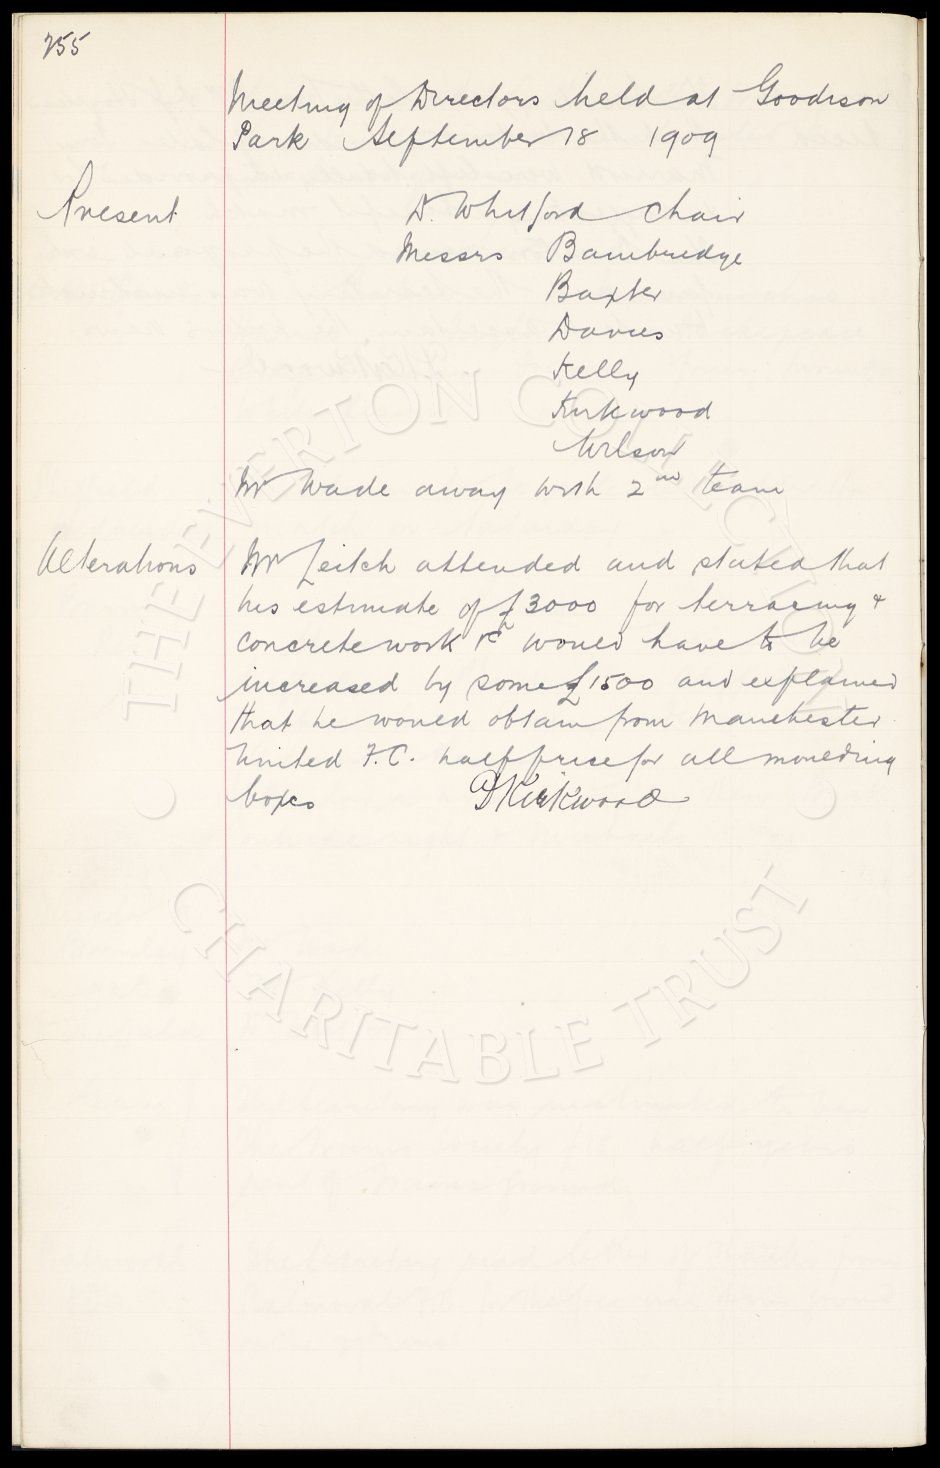 255
Meeting of Directors held at Goodison
Park September 18 1909
Present Dr Whitford Chair
Messrs Bainbridge
Baxter
Davies
Kelly
Kirkwood
Wilson
Mr Wade away with 2nd team
Alterations Mr Leitch attended and stated that
his estimate of £3000 for terracing &
concrete work &c would have to be
increased by some £1500 and explained
that he would obtain from Manchester
United F.C. half price for all moulding
boxes D Kirkwood
THE EVERTON COLLECTION
CHARITABLE TRUST